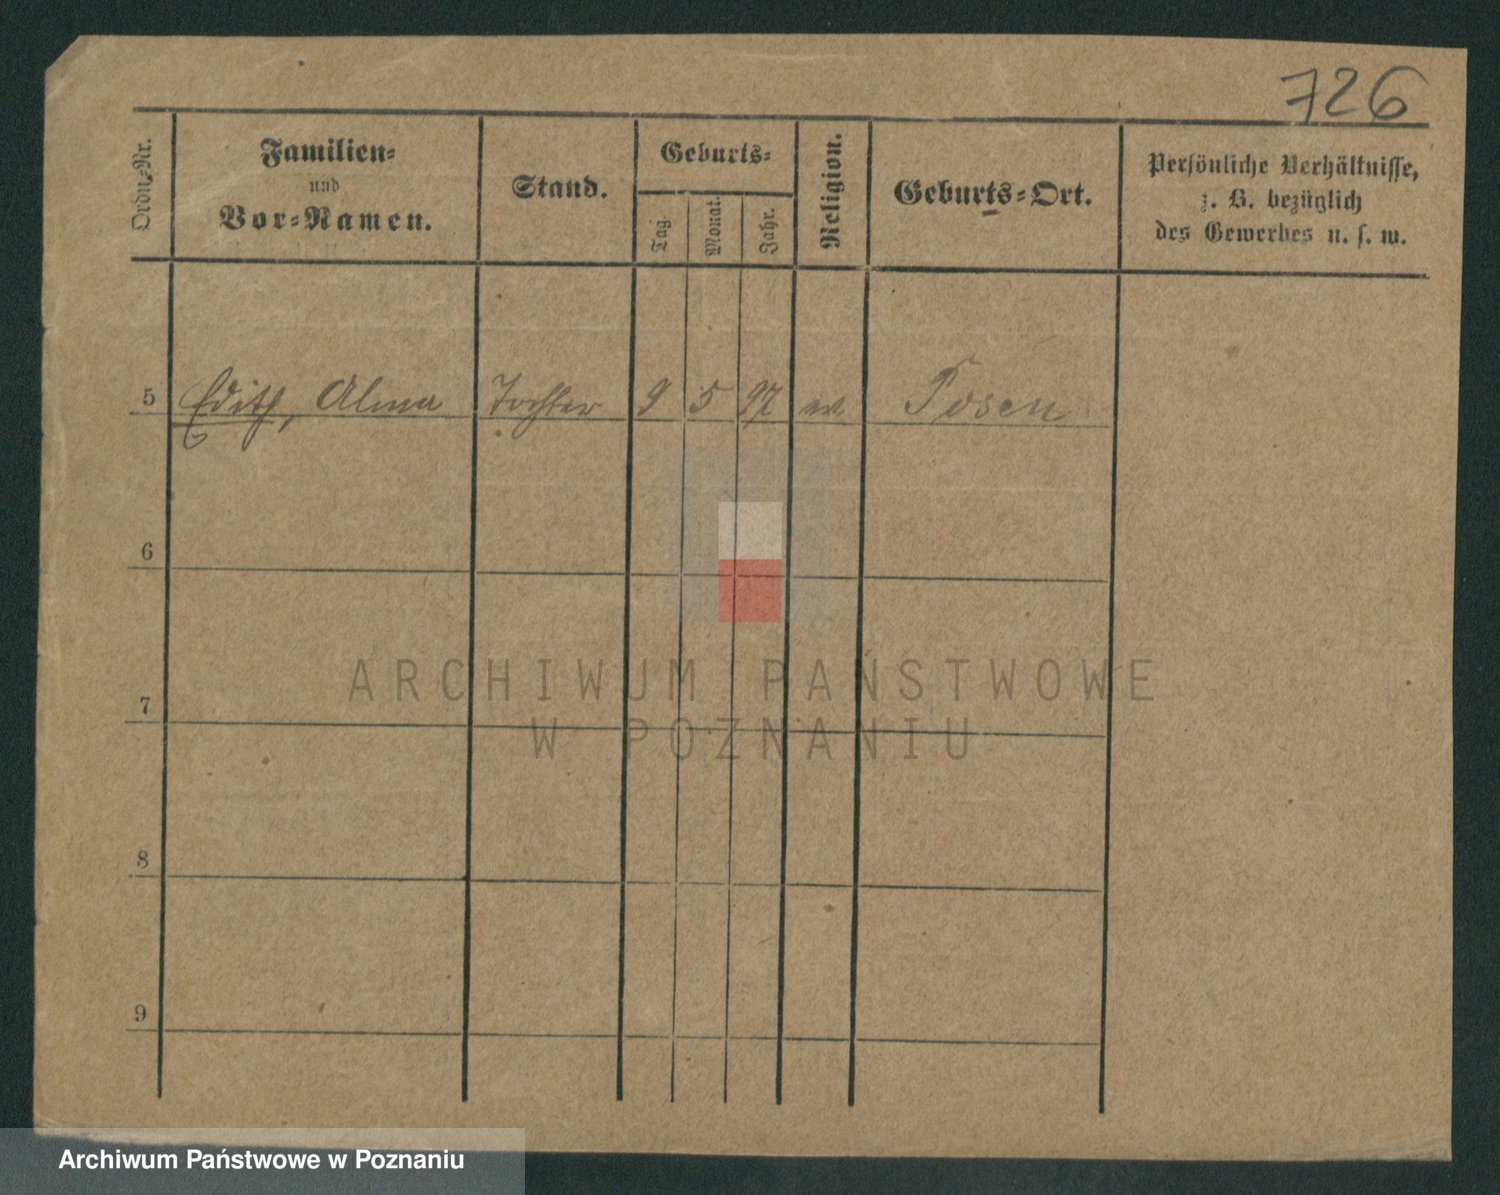 726
Ordn.-Nr.
Familien-
und
Vor-Namen.
Stand.
Geburts-
Tag.
Monat.
Jahr.
Religion.
Geburts-Ort.
Persönliche Verhältnisse,
z. B. bezüglich
des Gewerbes u. s. w.
5 Edith, Alma Tochter 9 5 97 Posen
6
7
8
9
ARCHIWUM PAŃSTWOWE
W POZNANIU
Archiwum Państwowe w Poznaniu